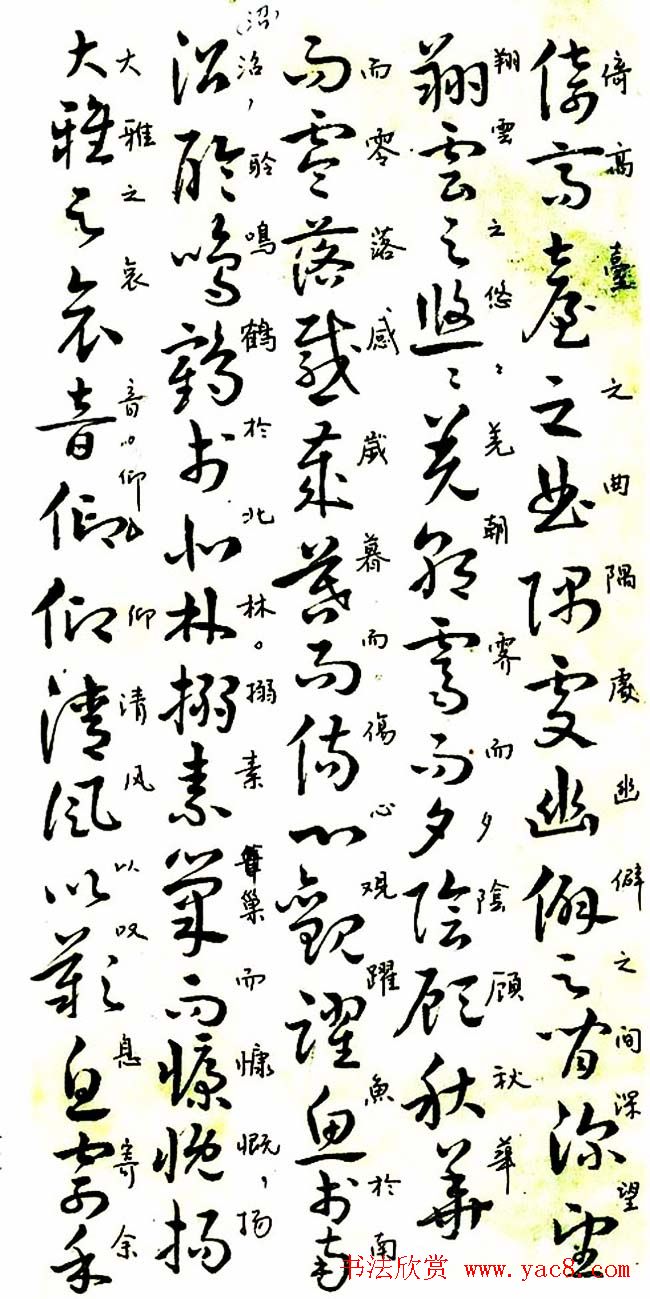 倚高臺之曲隅處幽僻之间深望
倚高臺之曲隅處幽僻之間深望
翔雲之悠〻羌朝霁而夕陰顾秋華
翔雲之悠〻羌朝霽而夕陰顧秋華
而零落感歲暮而傷心观躍魚於南
而零落感歲暮而傷心觀躍魚於南
(沼)沼,聆鳴鶴於北林。搦素巢而慷慨,扬
沼聆鳴鶴於北林搦素筆而慷慨揚
大雅之哀音仰仰清风以叹息寄余
大雅之哀音仰仰清風以歎息寄余
书法欣赏 www.yac8.com